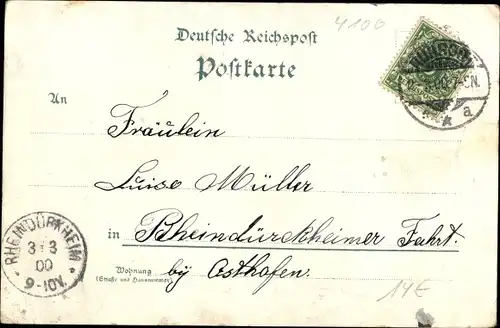 4100
Deutsche Reichspost
Postkarte
An
Fräulein
Luise Müller
in Rheindürckheimer Fahrt.
Wohnung
(Straße und Hausnummer)
by Osthofen.
RHEINDÜRKHEIM
3 3
00
9-10V.
a
14€